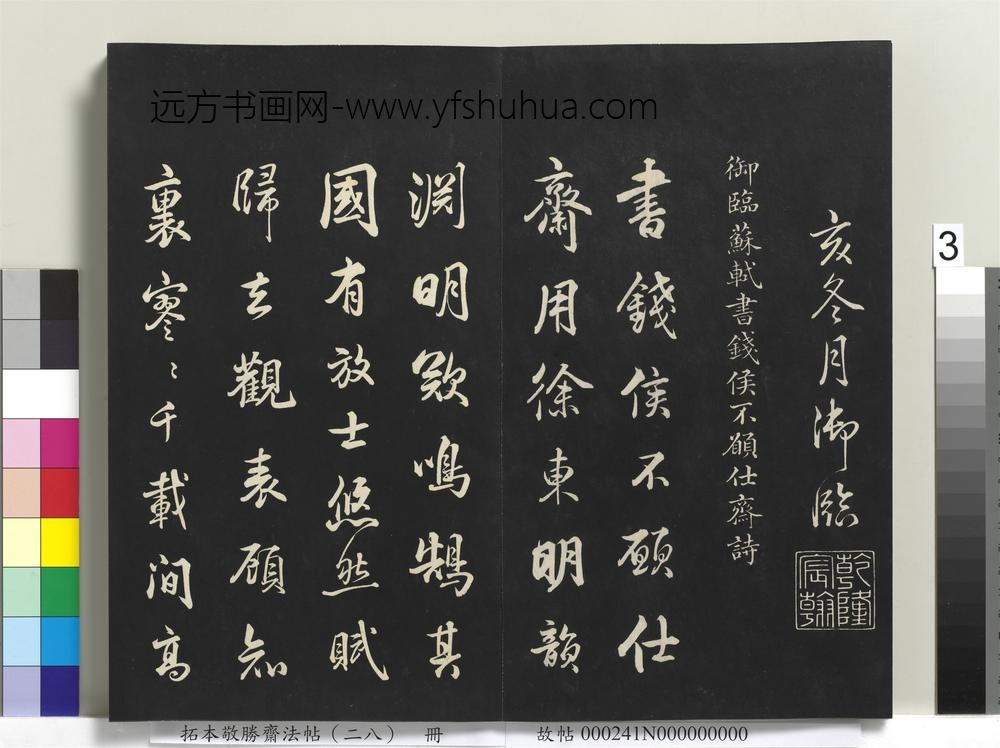 远方书画网-www.yfshuhua.com
亥冬月御臨
乾隆宸翰
御臨蘇軾書錢侯不願仕齋詩
書錢侯不願仕
齋用徐東明韻
淵明歎鳴鵠其
國有放士悠然賦
歸去觀表顧知
裏寥〻千載間高
3
拓本敬勝齋法帖（二八） 冊
故帖 000241N000000000